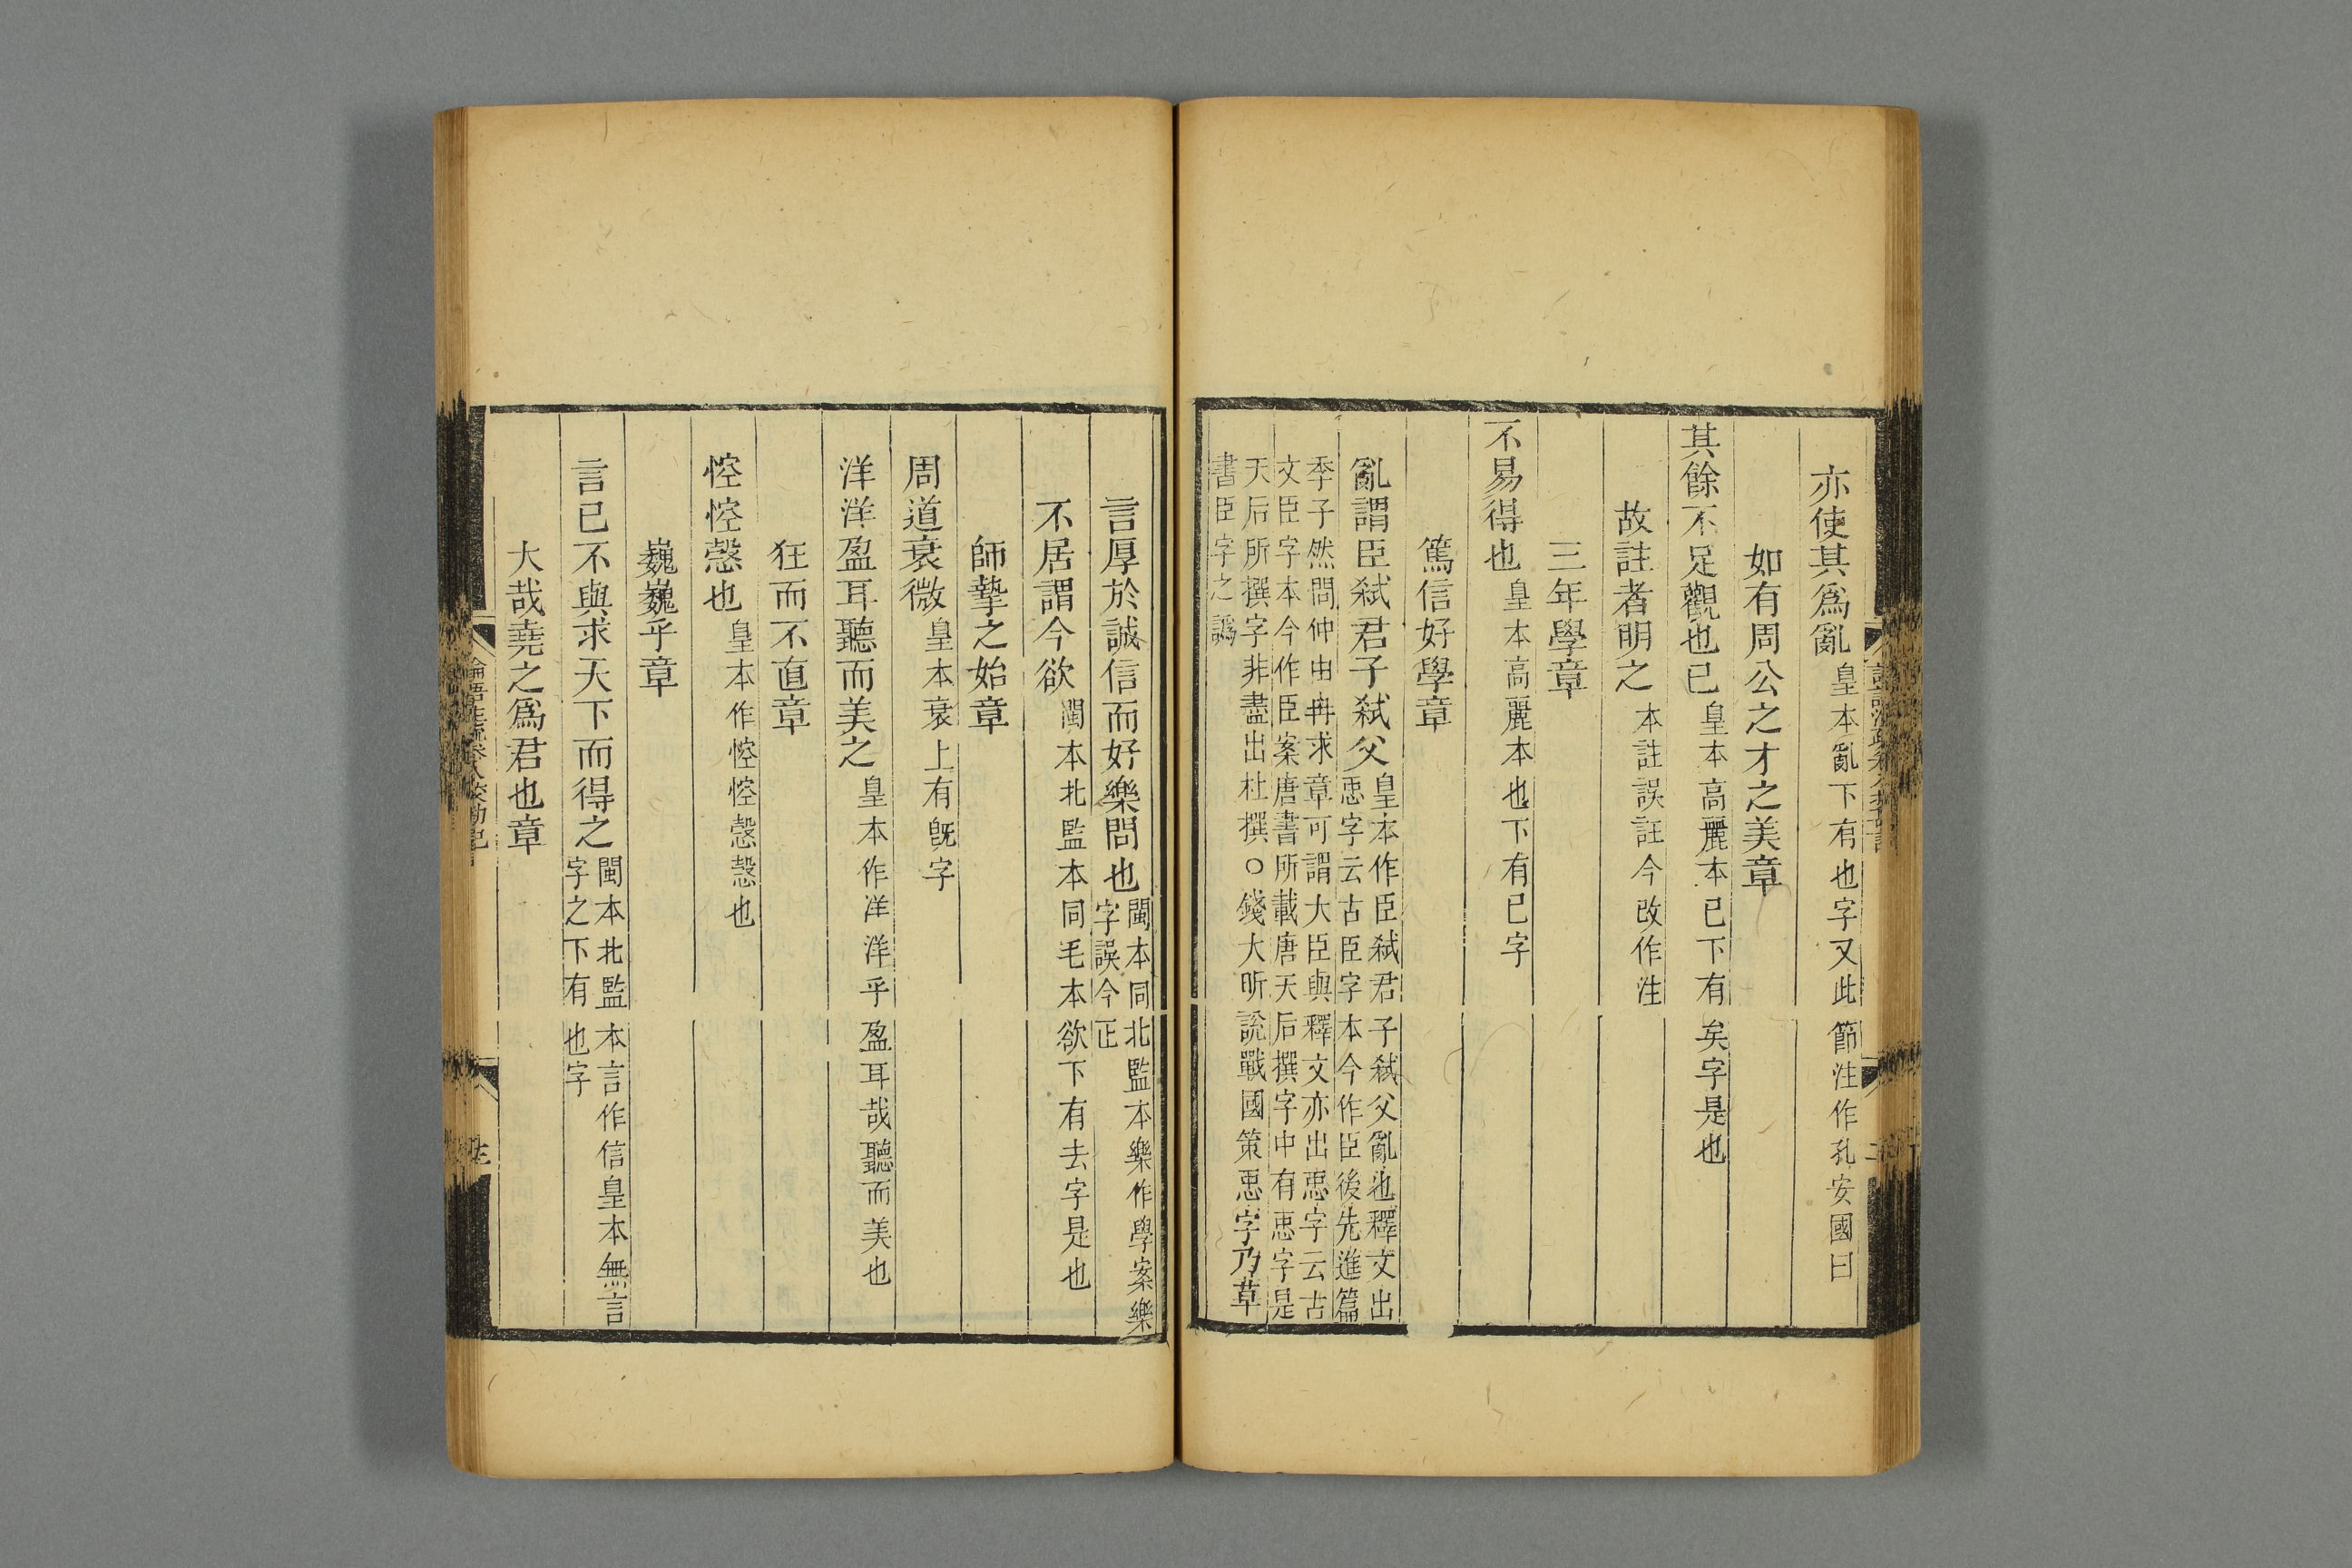 亦使其爲亂皇本亂下有也字又此節注作孔安國曰
如有周公之才之美章
其餘不足觀也已皇本高麗本已下有矣字是也
故註者明之本註誤註今改作注
三年學章
不易得也皇本高麗本也下有已字
篤信好學章
亂謂臣弑君子弑父皇本作臣弑君子弑父亂也釋文出
𢘑字云古臣字本今作臣後先進篇
季子然問仲由冉求章可謂大臣與釋文亦出𢘑字云古
文臣字本今作臣案唐書所載唐天后撰字中有𢘑字是
天后所撰字非盡出杜撰○錢大昕說戰國策𢘑字乃草
書臣字之譌
言厚於誠信而好樂問也閩本同北監本樂作學案樂
字誤今正
不居謂今欲閩本北監本同毛本欲下有去字是也
師摯之始章
周道衰微皇本衰上有旣字
洋洋盈耳聽而美之皇本作洋洋乎盈耳哉聽而美也
狂而不直章
悾悾愨也皇本作悾悾愨愨也
巍巍乎章
言已不與求天下而得之閩本北監本言作信皇本無言
字之下有也字
大哉堯之爲君也章
論語注疏卷八校勘記